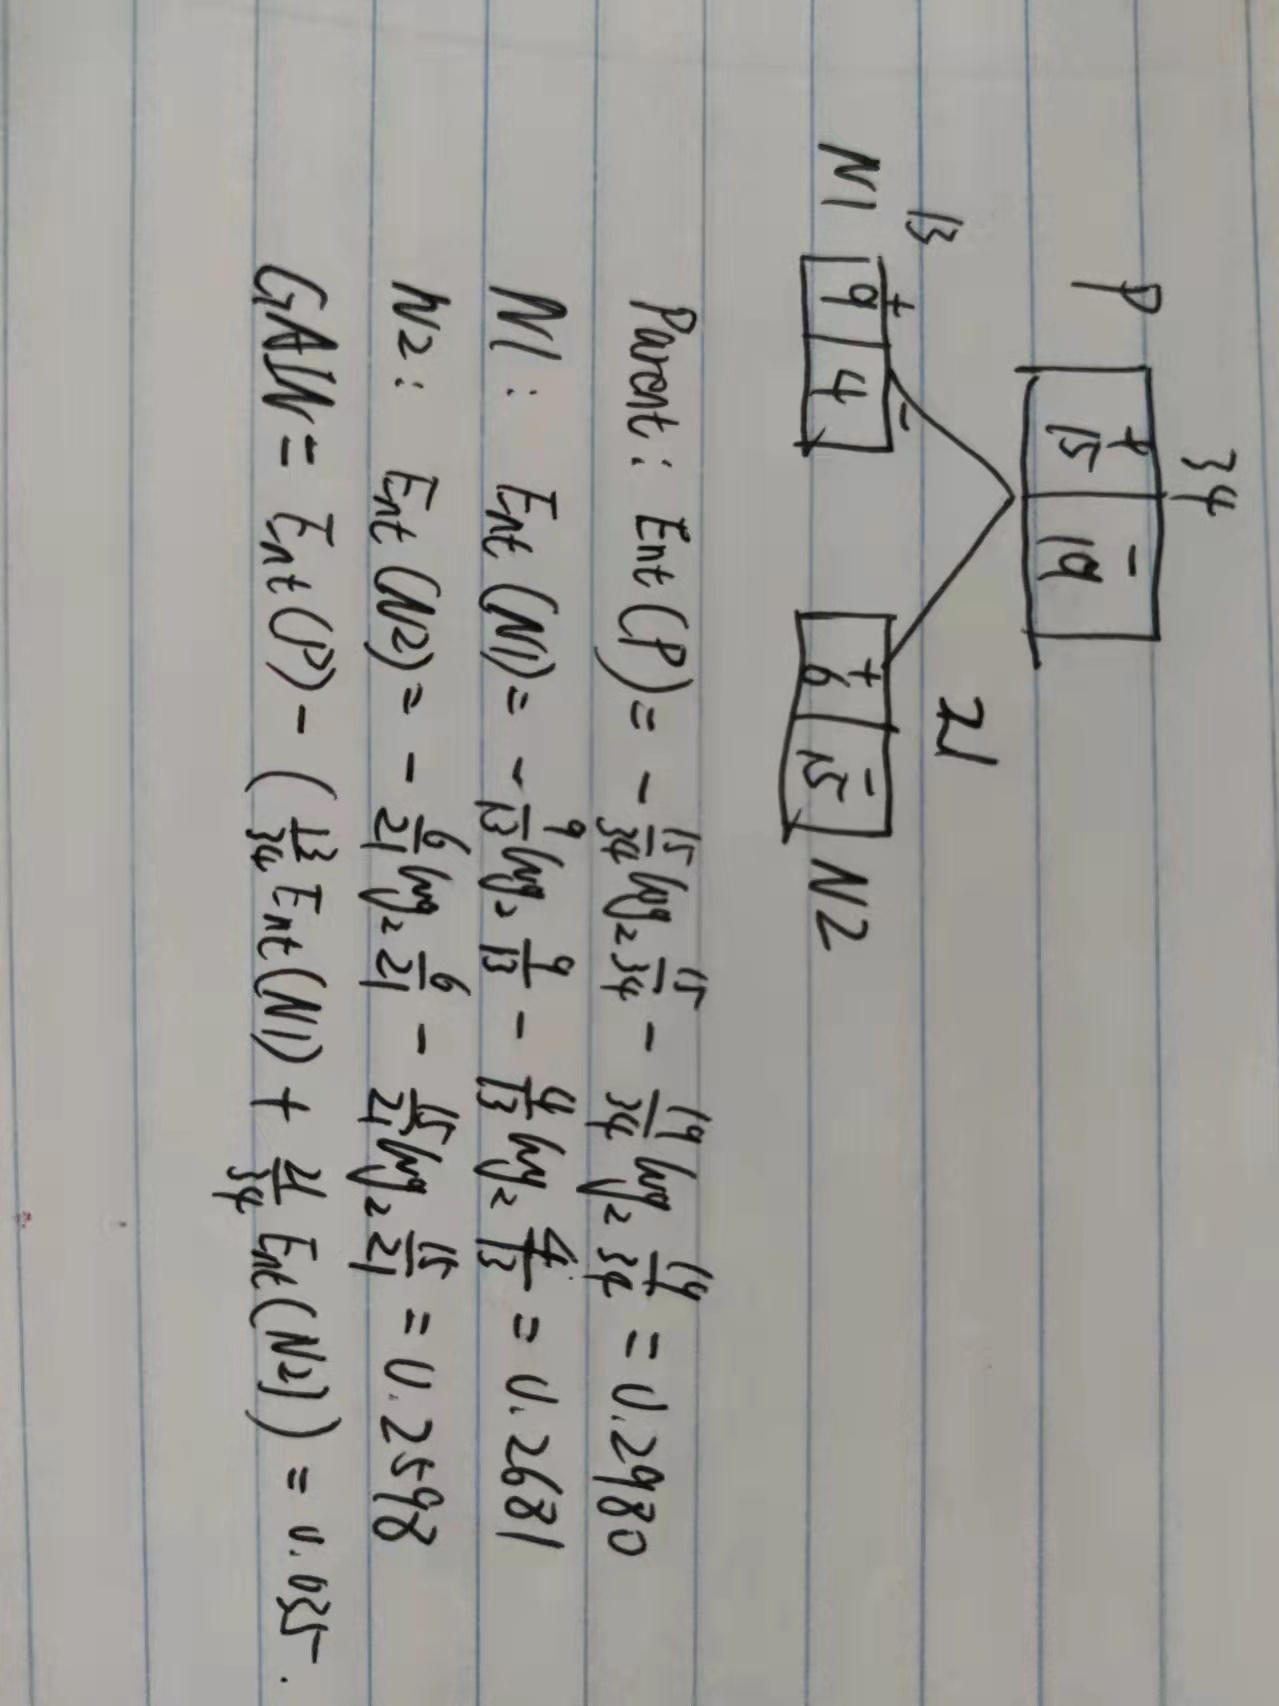 34
P + -
15 19
13 21
N1 + - + - N2
9 4 6 15
Parent: Ent(P) = - 15/34 log₂ 15/34 - 19/34 log₂ 19/34 = 0.2980
N1: Ent(N1) = - 9/13 log₂ 9/13 - 4/13 log₂ 4/13 = 0.2681
N2: Ent(N2) = - 6/21 log₂ 6/21 - 15/21 log₂ 15/21 = 0.2598
GAIN = Ent(P) - (13/34 Ent(N1) + 21/34 Ent(N2)) = 0.035.